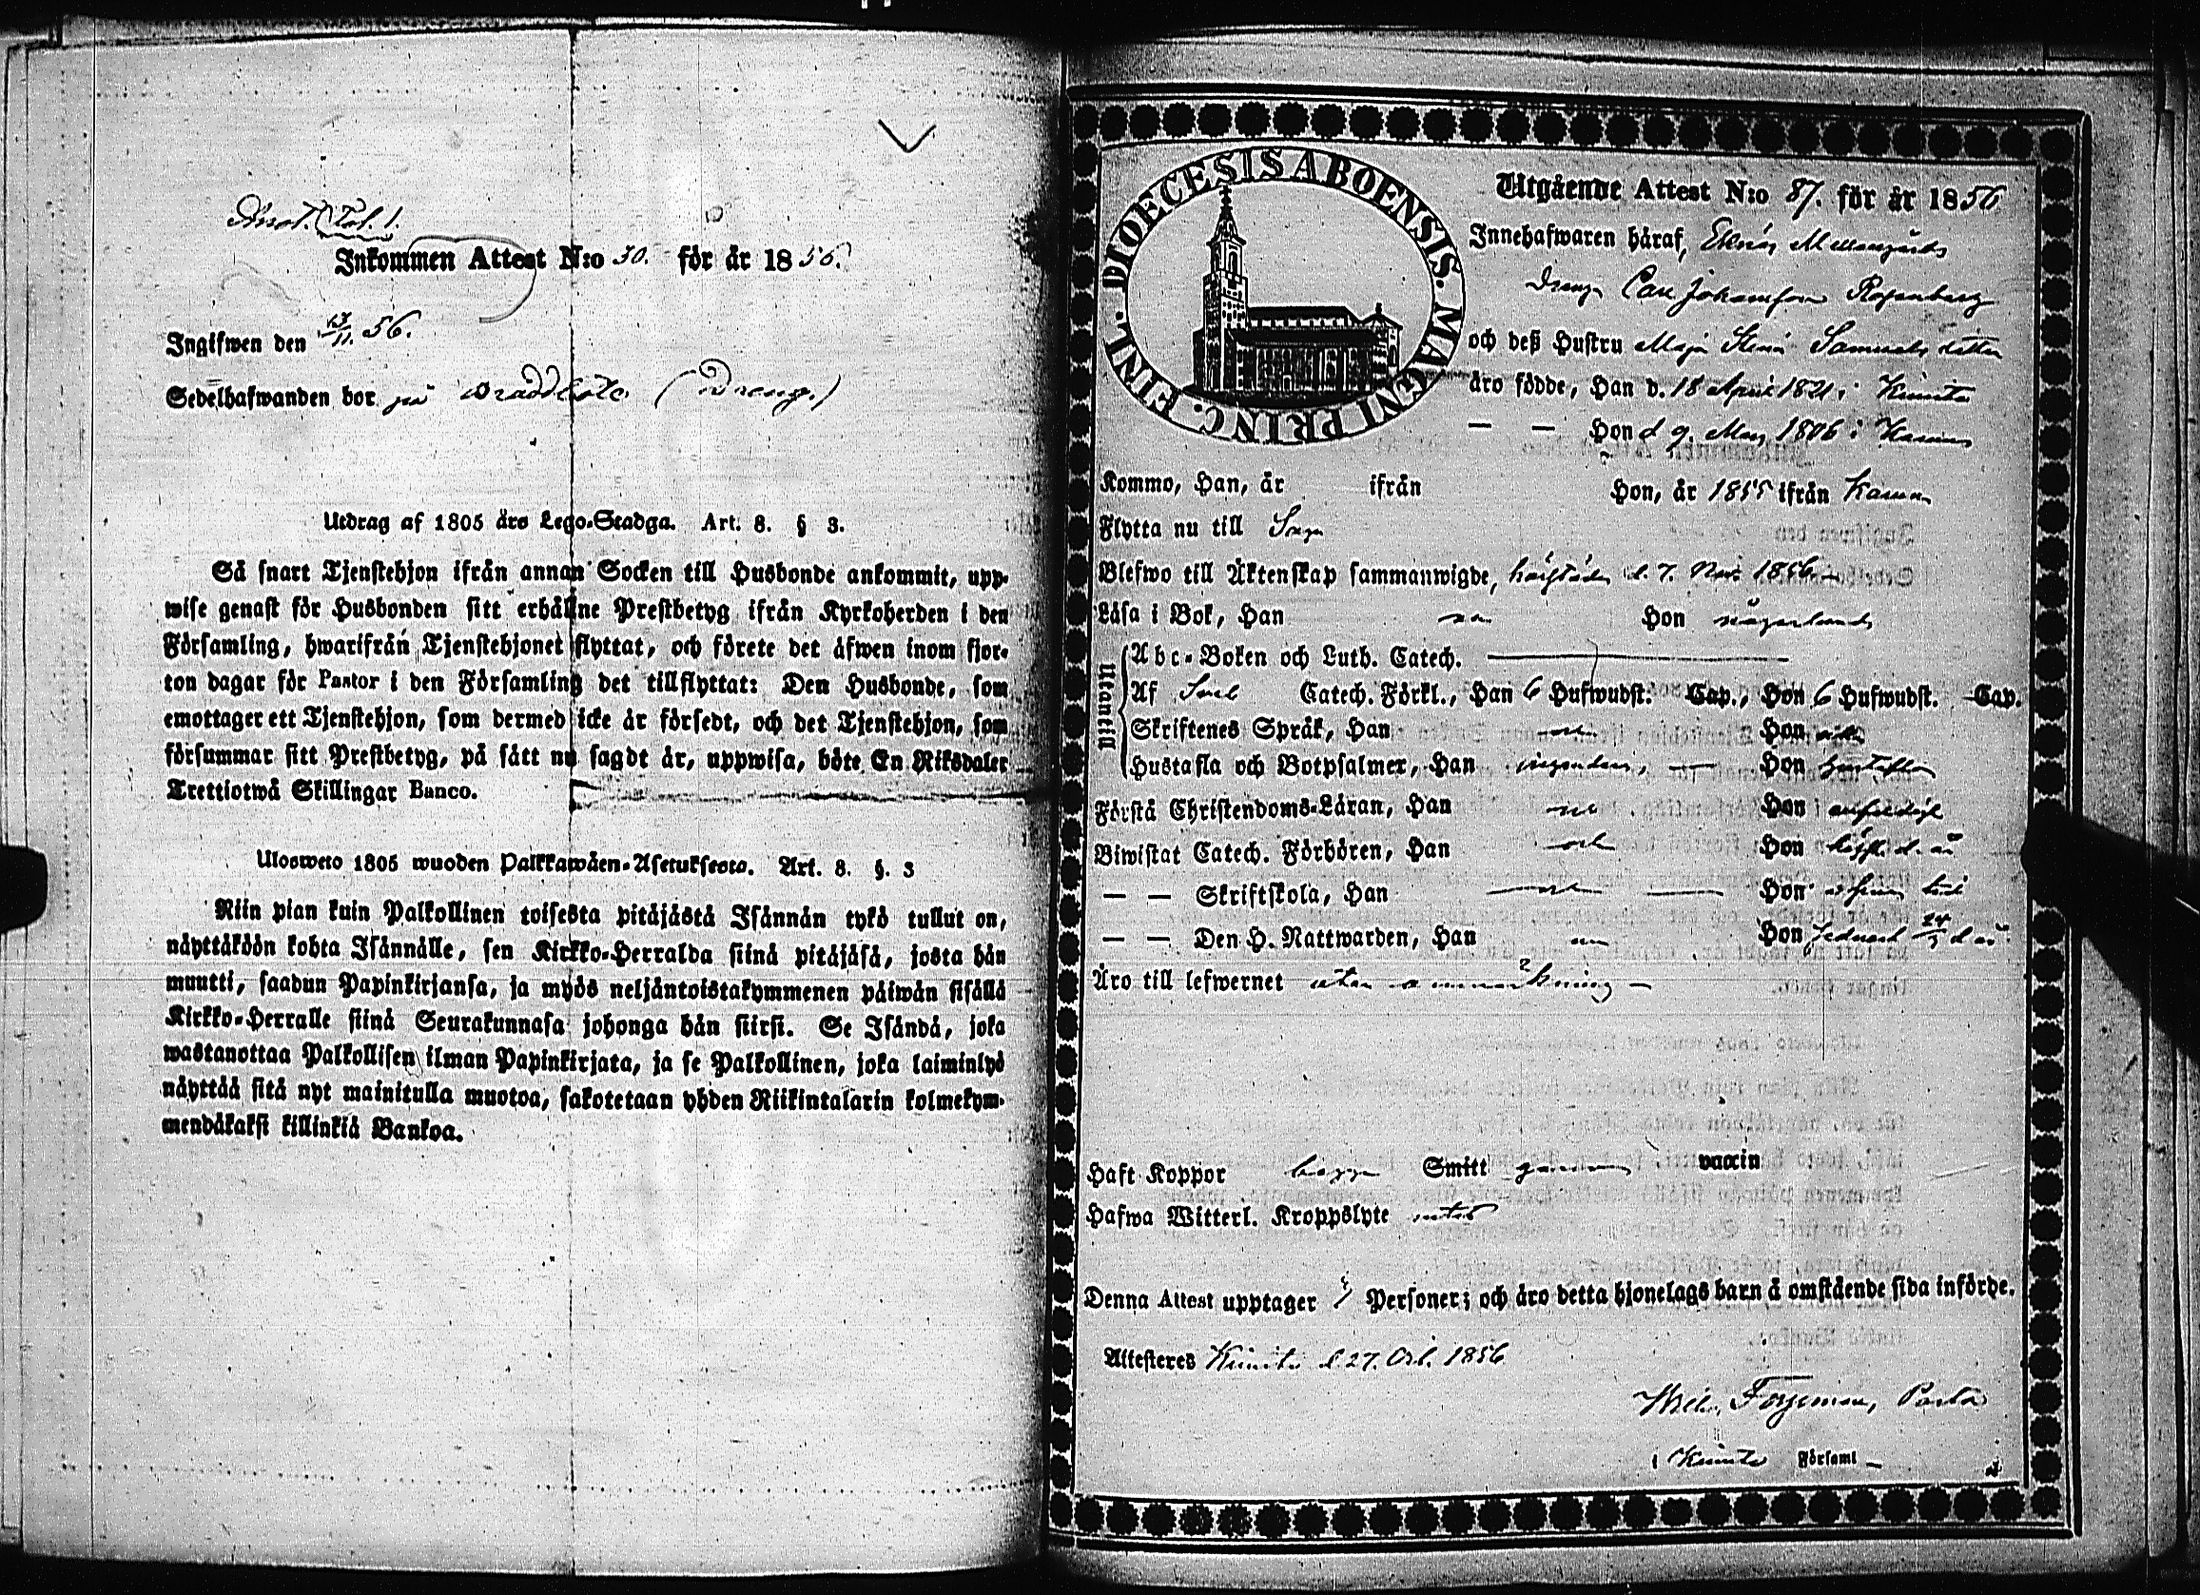 Annot. Fol. 1.
Inkommen Attest N:o 30. för år 1856.
Ingifwen den 13/11. 56.
Sedelhafwanden bor på (Dreng.)
Utdrag af 1805 års Lego-Stadga. Art. 8. § 3.
Så snart Tjenstehjon ifrån annan Socken till Husbonde ankommit, upp-
wise genast för Husbonden sitt erhållne Prestbetyg ifrån Kyrkoherden i den
Församling, hwarifrån Tjenstehjonet flyttat, och förete det äfwen inom fjor-
ton dagar för Pastor i den Församling det tillflyttat: Den Husbonde, som
emottager ett Tjenstehjon, som dermed icke är försedt, och det Tjenstehjon, som
försummar sitt Prestbetyg, på sätt nu sagdt är, uppwisa, böte En Riksdaler
Trettiotwå Skillingar Banco.
Ulosweto 1805 wuoden Palkkawäen-Asetuksesta. Art. 8. §. 3
Niin pian kuin Palkollinen toisesta pitäjästä Isännän tykö tullut on,
näyttäköön kohta Isännälle, sen Kirkko-Herralda siinä pitäjäsä, josta hän
muutti, saadun Papinkirjansa, ja myös neljäntoistakymmenen päiwän sisällä
Kirkko-Herralle siinä Seurakunnasa johonga hän siirsi. Se Isändä, joka
wastanottaa Palkollisen ilman Papinkirjata, ja se Palkollinen, joka laiminlyö
näyttää sitä nyt mainitulla muotoa, sakotetaan yhden Riikintalarin kolmekym-
mendäkaksi killinkiä Bankoa.
FINL. DIOECESIS ABOENSIS. MAGNI PRINC.
Utgående Attest N:o 87. för år 1856
Innehafwaren håraf, Mellangårds
Dreng Carl Johansson Rosenberg
och deß Hustru Maja Stina Samuelsdotter
äro födde, Han d. 18 April 1821 i Kimito
— — Hon d 9. May 1806 i Karuna
Kommo, Han, år ifrån Hon, år 1855 ifrån Karuna
Flytta nu till Sagu
Blefwo till Äktenskap sammanwigde, d. 7. 1856
Läsa i Bok, Han Hon någorlunda
Utantill
Abc-Boken och Luth. Catech. —
Af Catech. Förkl., Han 6 Hufwudst. Cap., Hon 6 Hufwudst. Cap.
Skriftenes Språk, Han och Hon
Hustafla och Botpsalmer, Han — Hon hustaflan
Förstå Christendoms-Läran, Han Hon
Biwistat Catech. Förhören, Han och Hon
— — Skriftskola, Han och — Hon
— — Den H. Nattwarden, Han Hon
Äro till lefwernet utan anmärkning —
Haft Koppor begge Smitt genom vaccin
Hafwa Witterl. Kroppslyte intet
Denna Attest upptager Personer; och äro detta hjonelags barn å omstående sida införde.
Attesteres Kimito d 27. Oct. 1856
Pastor
i Kimito Församl —